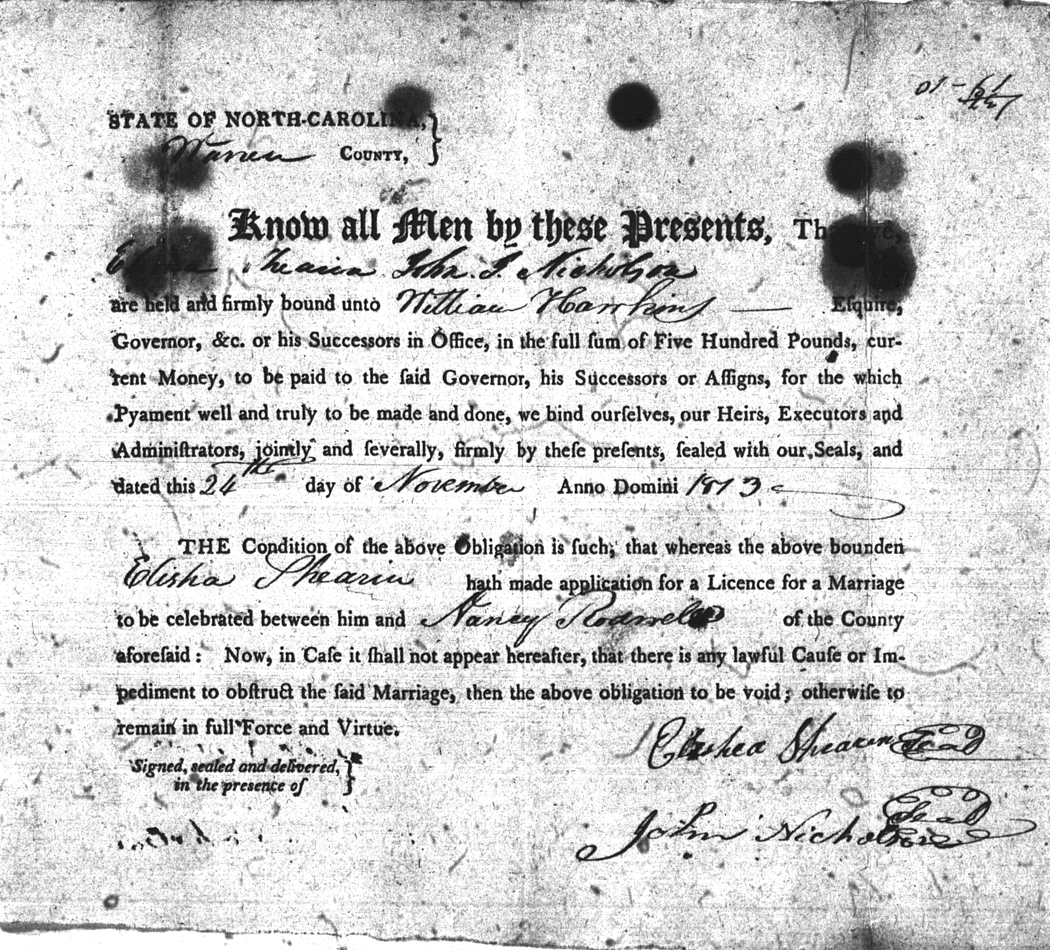 STATE OF NORTH-CAROLINA,
Warren COUNTY,
Know all Men by these Presents, That we,
Elisha Shearin John J. Nicholson
are held and firmly bound unto William Hawkins — Esquire,
Governor, &c. or his Successors in Office, in the full ſum of Five Hundred Pounds, cur-
rent Money, to be paid to the ſaid Governor, his Succeſſors or Aſſigns, for the which
Pyament well and truly to be made and done, we bind ourſelves, our Heirs, Executors and
Adminiſtrators, jointly and ſeverally, firmly by theſe preſents, ſealed with our Seals, and
dated this 24th day of November Anno Domini 1813
THE Condition of the above Obligation is ſuch; that whereas the above bounden
Elisha Shearin hath made application for a Licence for a Marriage
to be celebrated between him and Nancy Rodwell of the County
aforeſaid: Now, in Caſe it ſhall not appear hereafter, that there is any lawful Cauſe or Im-
pediment to obſtruct the ſaid Marriage, then the above obligation to be void; otherwiſe to
remain in full Force and Virtue.
Elisha Shearin Seal
Signed, sealed and delivered,
in the presence of
John Nicholson Seal